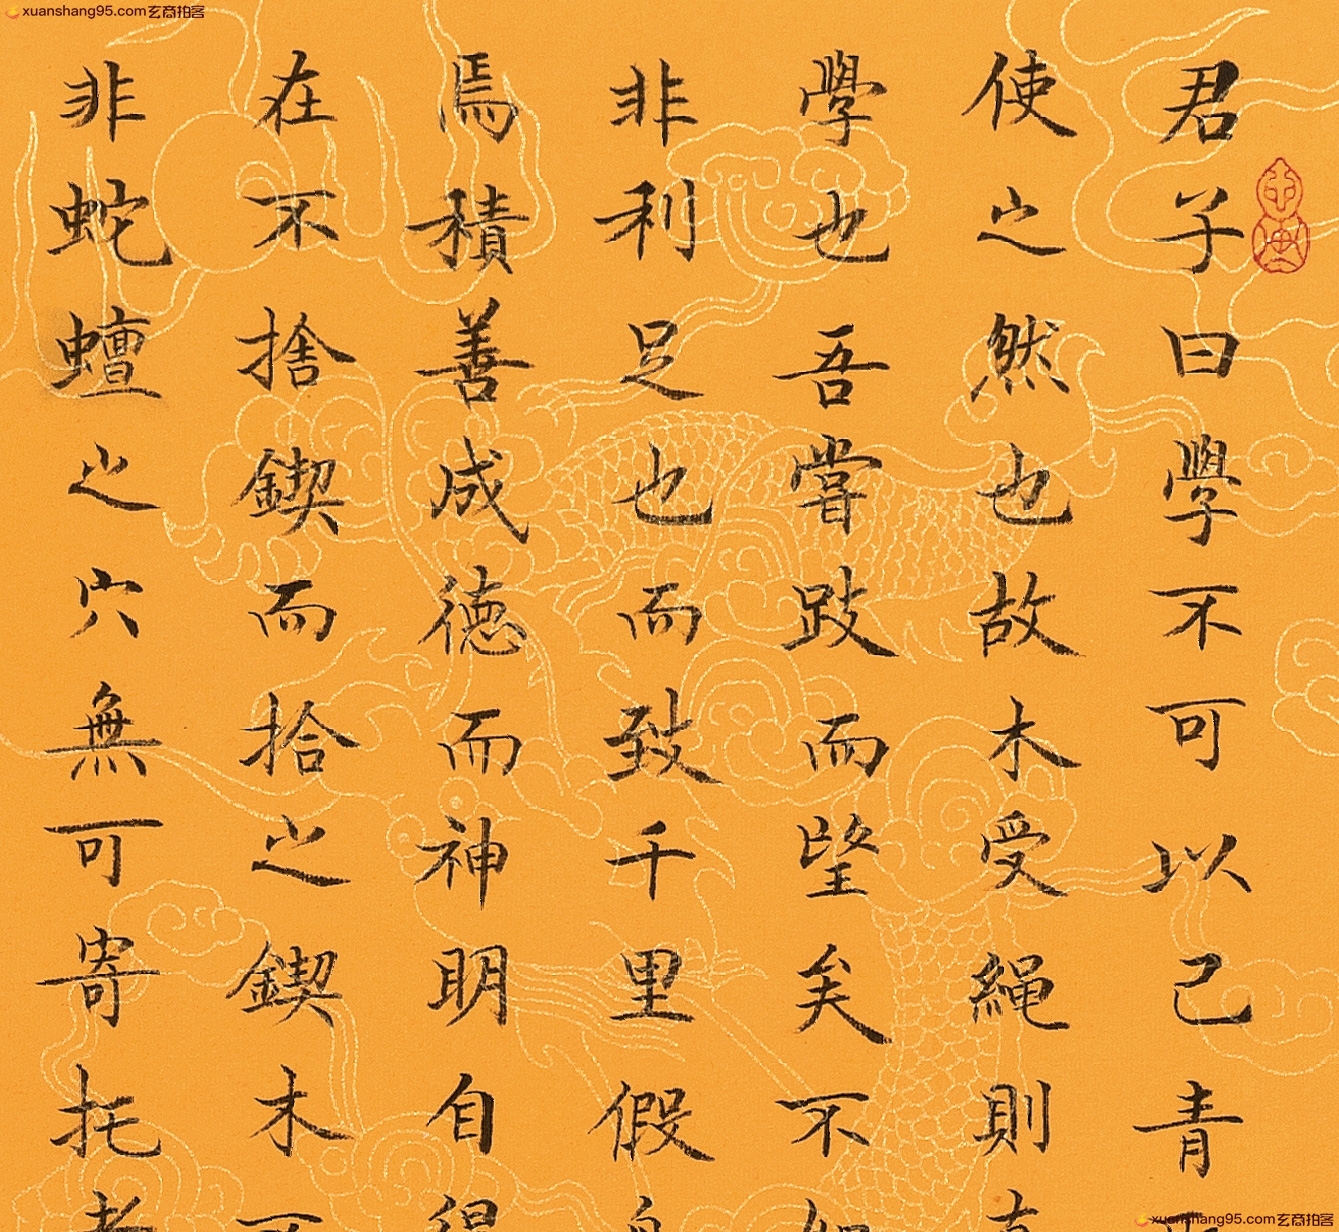 君子曰學不可以已青
使之然也故木受繩則
學也吾嘗跂而望矣不
非利足也而致千里假
焉積善成德而神明自得
在不捨鍥而拾之鍥木不
非蛇蟺之穴無可寄托者
xuanshang95.com玄商拍客
xuanshang95.com玄商拍客